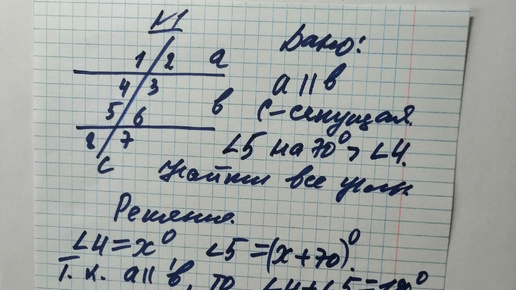 N1
Дано:
1 2 a
a || в
4 3
в
c-секущая.
5 6
∠5 на 70° > ∠4.
8 7
c
Найти все углы
Решение.
∠4 = x° ∠5 = (x+70)°.
Т. к. a || в, то ∠4+∠5=180°